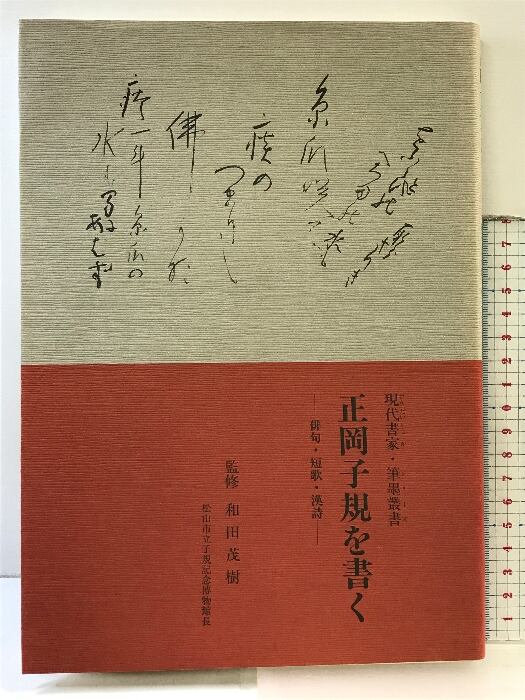 糸瓜咲て
痰の
つまりし
佛
かな
痰一斗糸瓜の
水も間にあはず
現代書家・筆墨叢書
正岡子規を書く
―俳句・短歌・漢詩―
監修 和田茂樹
松山市立子規記念博物館長